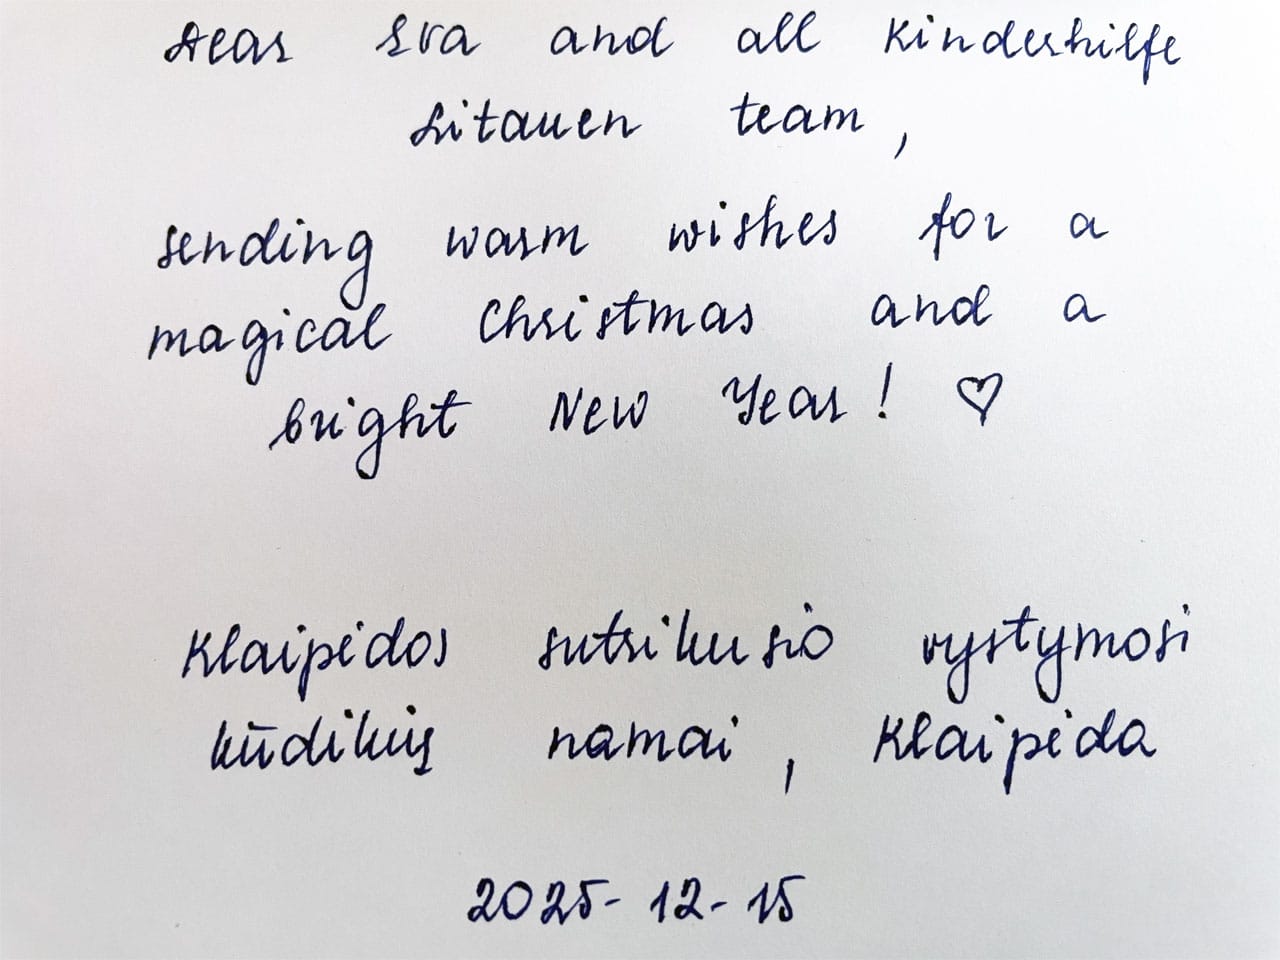 Dear Eva and all Kinderhilfe
Litauen team,
sending warm wishes for a
magical Christmas and a
bright New Year! ♡
Klaipėdos sutrikusio vystymosi
kūdikių namai, Klaipėda
2025-12-15